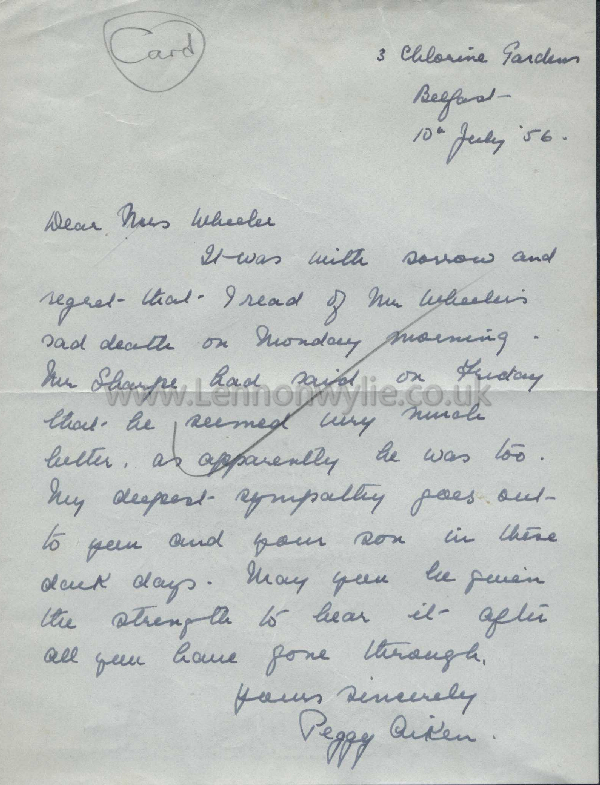 Card
3 Chlorine Gardens
Belfast
10th July '56.
Dear Mrs Wheeler
It was with sorrow and
regret that I read of Mr Wheeler's
sad death on Monday morning.
Mr Sharpe had said on Friday
www.Lennonwylie.co.uk
that he seemed very much
better, as apparently he was too.
My deepest sympathy goes out
to you and your son in these
dark days. May you be given
the strength to bear it after
all you have gone through.
Yours sincerely
Peggy Aiken.